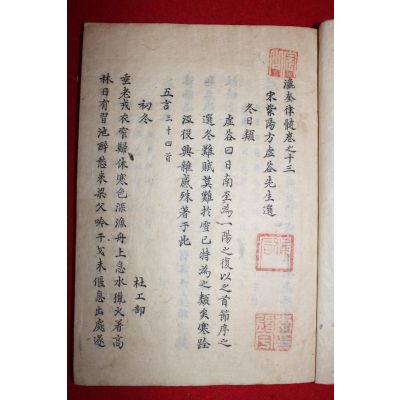 瀛奎律髓卷之十三
宋紫陽方虛谷先生選
冬日類
虛谷曰日南至為一陽之復以之首節序之
選冬難賦莫難於雪已特為之類矣寒詮
泓復興雜感殊著于此
五言三十四首
初冬　杜工部
垂老戎衣窄歸休寒色深漁舟上急水獵火著高
林日有習池醉愁來梁父吟干戈未偃息出處遂